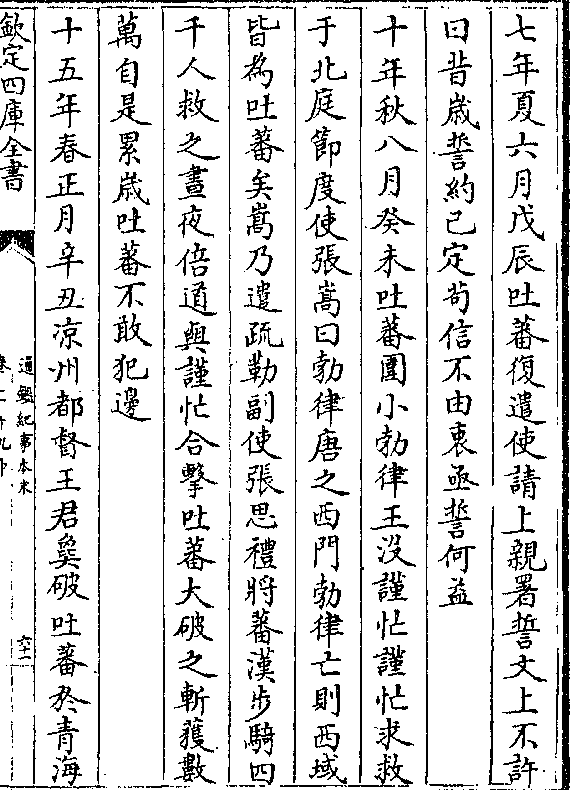 七年夏六月戊辰吐蕃復遣使請上親署誓文上不許
曰昔歲誓約已定苟信不由衷亟誓何益
十年秋八月癸未吐蕃圍小勃律王没謹忙謹忙求救
于北庭節度使張嵩曰勃律唐之西門勃律亡則西域
皆為吐蕃矣嵩乃遣疏勒副使張思禮將蕃漢步騎四
千人救之晝夜倍道與謹忙合擊吐蕃大破之斬獲數
萬自是累歲吐蕃不敢犯邊
十五年春正月辛丑凉州都督王君㚟破吐蕃於青海
欽定四庫全書
通鑑紀事本末
六十一